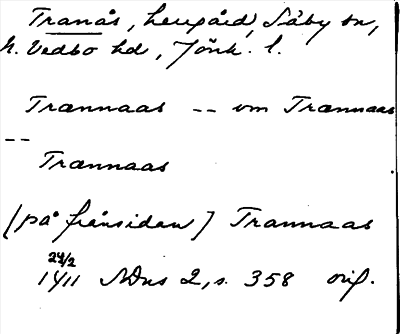 Tranås, herrgård, Säby sn,
N. Vedbo hd, Jönk. l.
Trannaas -- om Trannaas
--
Trannaas
[på frånsidan] Trannaas
24/2
1411 SDns 2, s. 358 orig.